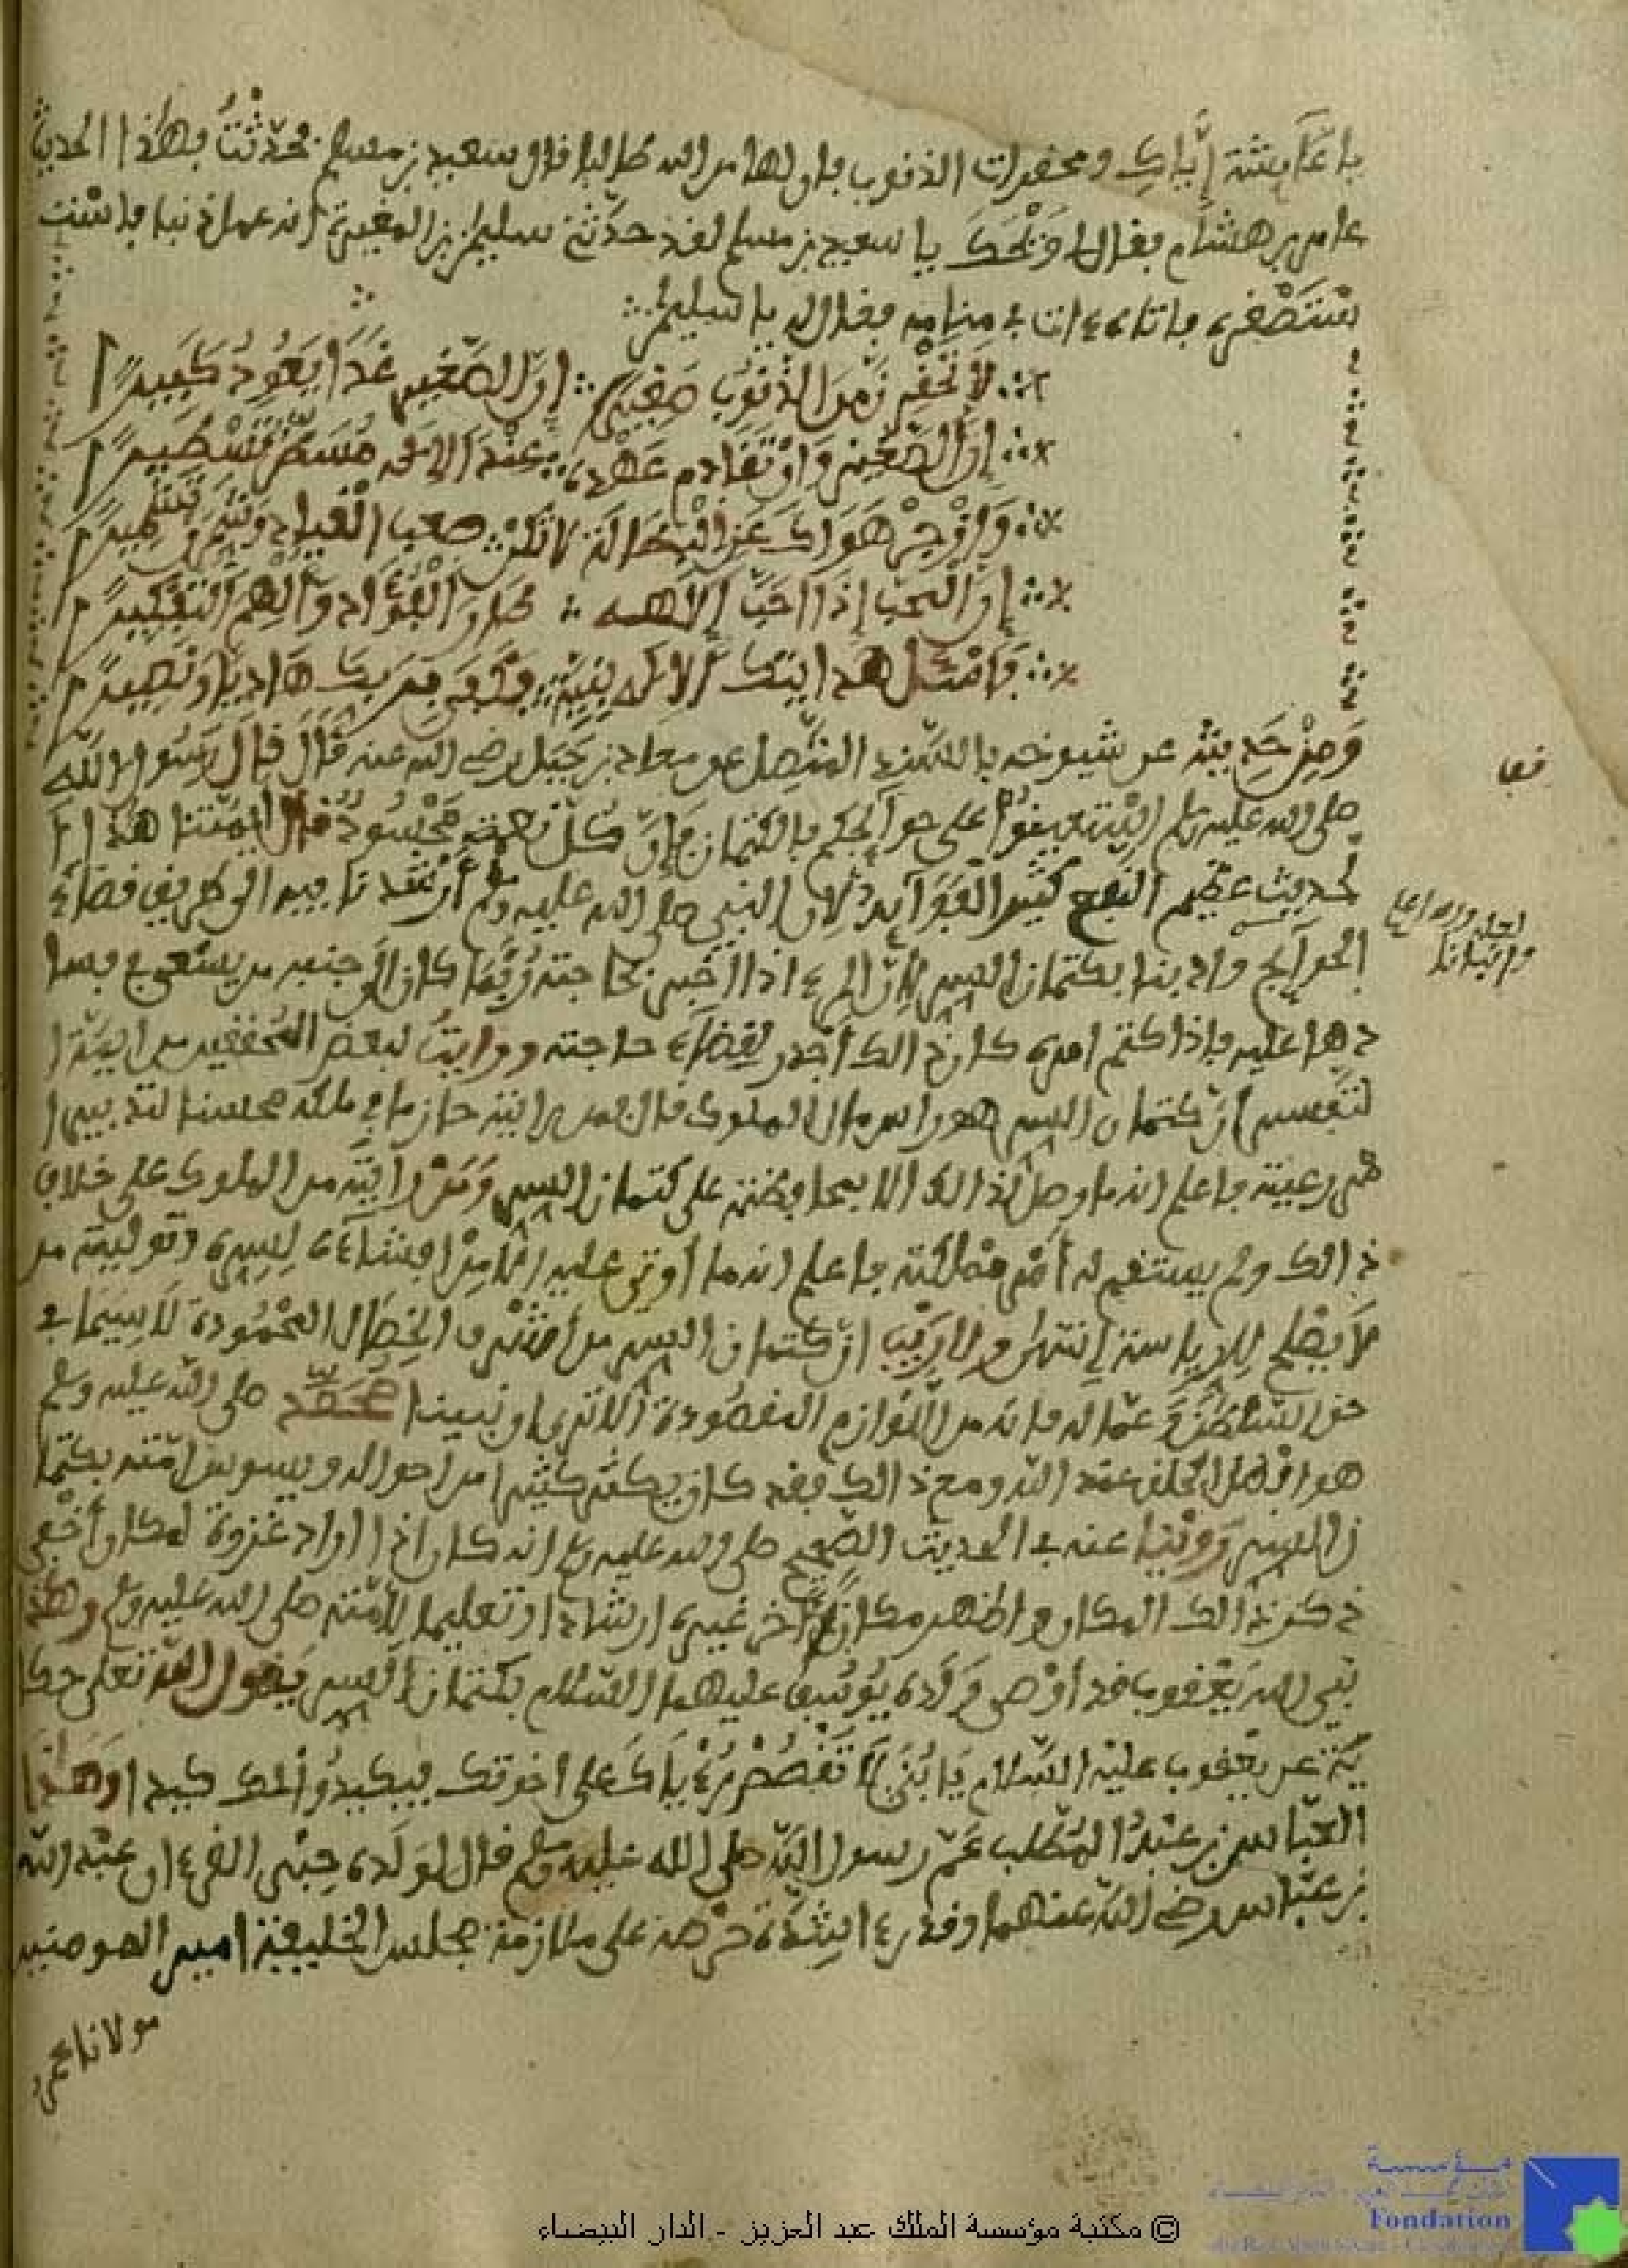 يا عائشة إياك ومحقرات الذنوب فإن لها من الله طالبا قال سعيد بن مسلم فحدثت بهذا الحديث
عامر بن هشام فقال لي ويحك يا سعيد بن مسلم لقد حدثني سليمن بن المغيرة أنه عمل ذنبا فاستـ
ستصغره فأتاه ءات في منامه فقال له يا سليمن
لا تحقرن من الذنوب صغيرا إن الصغير غدا يعود كبيرا
إن الصغير وإن تقادم عهده عند الإله مسطر تسطيرا
وازجر هواك عن البطالة لا تكن صعب القياد وشمرن تشميرا
إن المحب إذا أحب إلاهه طار الفؤاد وألهم التفكيرا
فاسئل هدايتك الإله بنية فكفى بربك هاديا ونصيرا
ومن حديثه عن شيوخه بالسند المتصل عن معاذ بن جبل رضي الله عنه قال قال رسول الله
صلى الله عليه وسلم استعينوا على حوائجكم بالكتمان فإن كل نعمة محسود قال أيمتنا هذا ا
لحديث عظيم النفع كثير الفوائد لأن النبي صلى الله عليه وسلم أرشدنا فيه الى طريق قضاء
الحوائج وأدبنا بكتمان السر لأن المرء اذا أخبر بحاجته ربما كان الى جنبه من يستمع فيفسـ
دها عليه فإذا كتم أمره كان ذالك أجدر لقضاء حاجته ورأيت لبعض المحققين من أيمة ا
لتفسير أن كتمان السر هو رأس مال الملوك قال فمن رأيته حازما في ملكه محسنا لتدبير ا
مر رعيته فاعلم انه ما وصل لذالك الا بمحافظته على كتمان السر ومن رأيته من الملوك على خلاف
ذالك ولم يستقم له أمر مملكته فاعلم انه ما أوتي عليه الا من إفشائه لسره وتوليته من
لا يصلح للرياسة انتهى ولا ريب ان كتمان السر من أشرف الخصال المحمودة لا سيما في
حق السلطان وعماله فإنه من اللوازم المقصودة ألا ترى ان نبينا محمد صلى الله عليه وسلم
هو أفضل الخلق عند الله ومع ذالك فقد كان يكتم كثيرا من أحواله ويسوس أمته بكتما
ن السر روينا عنه في الحديث الصحيح صلى الله عليه وسلم انه كان اذا اراد غزوة لمكان أخفى
ذكر ذالك المكان وأظهر مكانا آخر غيره ارشادا وتعليما لأمته صلى الله عليه وسلم وهذا
نبي الله يعقوب قد أوصى ولده يوسف عليهما السلام بكتمان السر يقول الله تعلى حكا
ية عن يعقوب عليه السلام يا بني لا تقصص رءياك على اخوتك فيكيدوا لك كيدا وهذا
العباس بن عبد المطلب عم رسول الله صلى الله عليه وسلم قال لولده حبر القرءان عبد الله
بن عباس رضي الله عنهما وقد رءا شدة حرصه على ملازمة مجلس الخليفة أمير المومنين
مولانا عمر
قف
لعله
وإتيانا
© مكتبة مؤسسة الملك عبد العزيز - الدار البيضاء
مؤسسة
Fondation